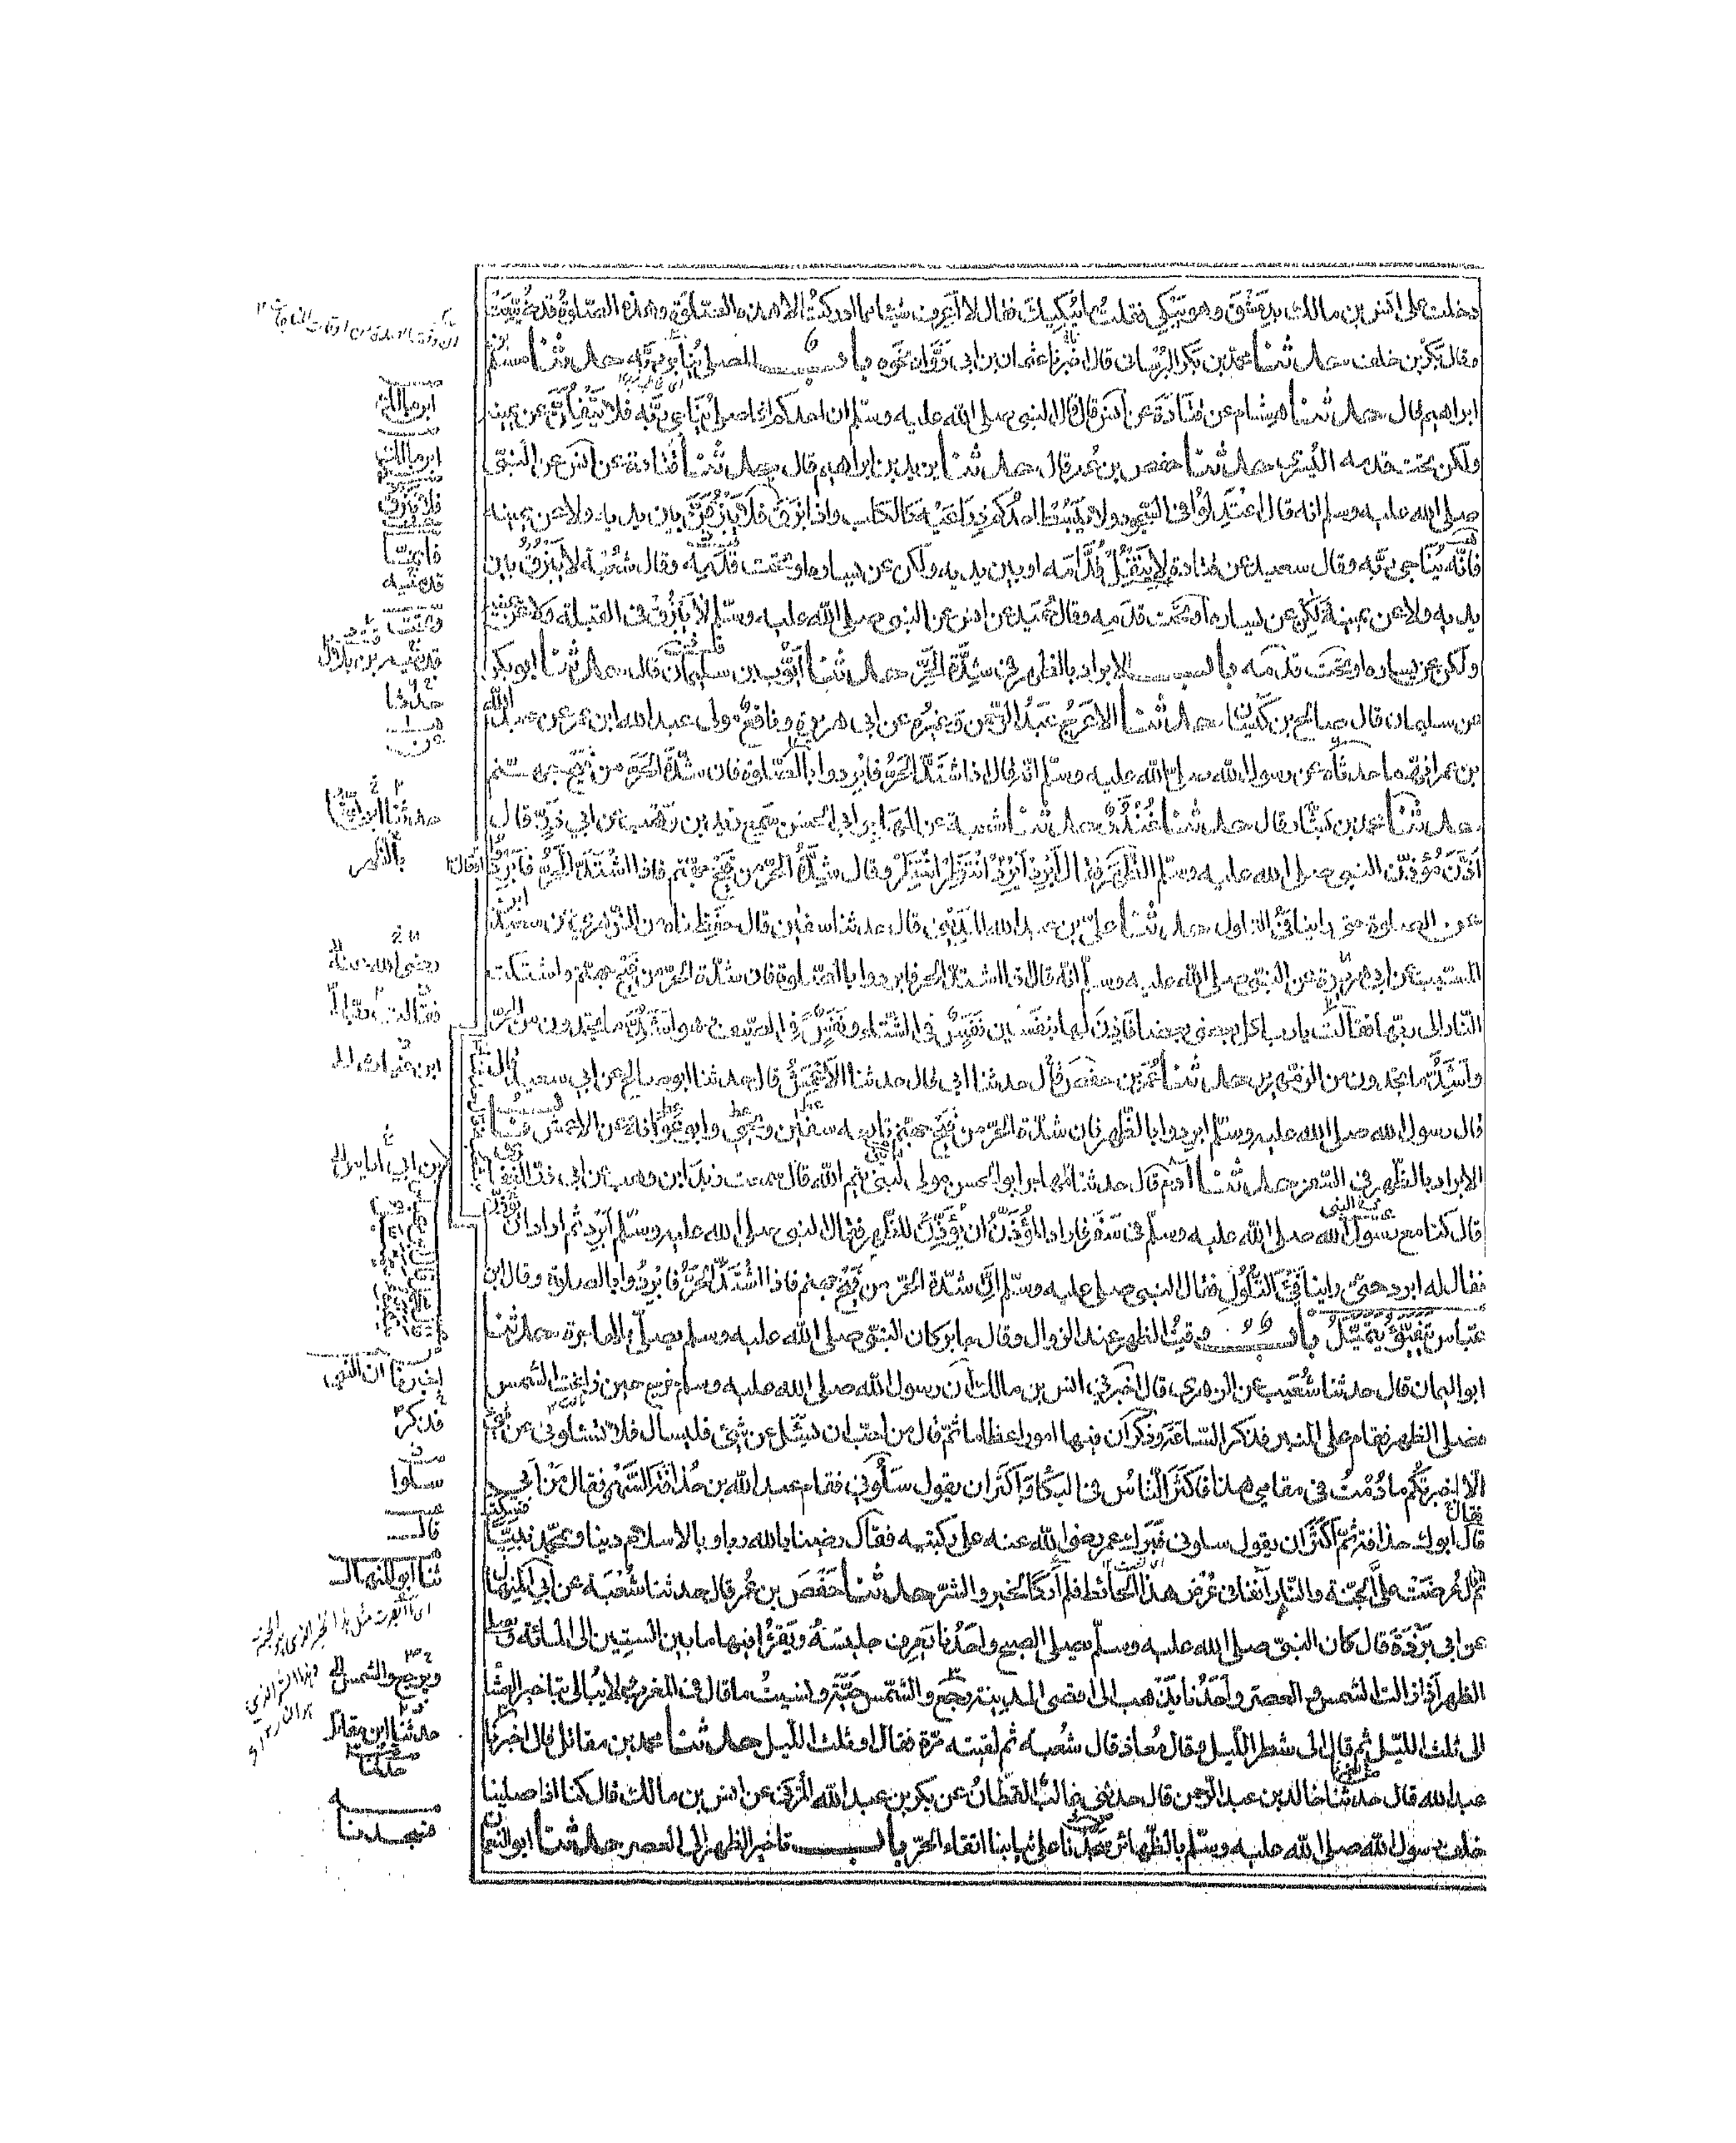 دخلت على انس بن مالك بدمشق وهو يبكي فقلت ما يُبكيك فقال لا اعرف شيئا مما ادركتُ الا هذه الصلوة وهذه الصلوة قد ضُيّعَت
وقال بَكْر بن خلف حدثنا محمد بن بَكر البُرْسانى قال اخبرنا عثمان بن ابى رَوّاد نحوَه باب المصلى يُناجى ربّه حدثنا مسلم بن
ابراهيم قال حدثنا هشام عن قتادَة عن انس قال قال النبى صلى الله عليه وسلم ان احدكم اذا صلى يُنَاجى ربَّه فلا يَتْفِلَنَّ عن يمينه
ولكن تحت قدمه اليُسرى حدثنا حفص بن عُمر قال حدثنا يزيد بن ابراهيم قال حدثنا قتادة عن انس عن النبىّ
صلى الله عليه وسلم انه قال اعْتَدِلُوْا فى السُّجود ولا يَبْسُط احدُكم ذِراعَيْه كالكلب واذا بَزَقَ فلا يَبْزُقَنَّ بين يديه ولا عن يمينه
فانّه يُنَاجى ربَّه وقال سعيد عن قتادة لا يَتْفِلُ قُدَّامَه او بين يديه ولكن عن يساره او تحت قدَمَيْه وقال شُعْبَة لا يَبْزُقُ بين
يديه ولا عن يمينه ولكن عن يساره او تحت قدَمِه وقال حُمَيد عن انس عن النبى صلى الله عليه وسلّم لا يَبْزُقْ فى القبلة ولا عن يمينه
ولكن عن يساره او تحت قدَمه باب الابراد بالظهر فى شِدَّة الحَرّ حدثنا ايّوب بن سليمان قال حدثنا ابو بكر
عن سليمان قال صالح بن كَيْسان حدثنا الاعرَجُ عَبدُ الرّحمن وغيرُه عن ابى هريرة ونافعٌ مولى عبد الله ابن عمر عن عبد الله
بن عمر انهما حدثاه عن رسول الله صلى الله عليه وسلم انّه قال اذا اشْتَدَّ الحَرّ فابْرِدوا بالصلوة فان شدّةَ الحَرّ من فَيْح جهنّم
حدثنا محمد بن بَشّار قال حدثنا غُنْدُر حدثنا شعبة عن المهاجر ابى الحسن سَمِع زيد بن وَهْب عن ابى ذَرّ قال
اَذَّنَ مُؤَذّن النبى صلى الله عليه وسلّم الظُّهر فقال اَبْرِدْ اَبْرِدْ او قال انْتَظِرْ انْتَظِرْ وقال شِدَّةُ الحَرّ من فَيْح جهنّم فاذا اشْتَدَّ الحَرُّ فَابْرِدُوا
عن الصلوة حتى راينا فَيْءَ التلول حدثنا علىّ بن عبد الله المَدِيْنى قال حدثنا سفيان قال حَفِظناه من الزّهرى عن سعيد بن
المسَيّب عن ابى هريرة عن النبىّ صلى الله عليه وسلّم انّه قال اذا اشتدّ الحر فابردوا بالصّلوة فان شدّة الحَرّ من فَيْح جهنّم واشتكت
النّار الى ربّها فقالت يا رب اكل بعضى بعضا فاَذِنَ لها بنَفَسَين نَفَسٍ فى الشّتاء ونَفَسٍ فى الصّيف هو اَشَدُّ ما تجدون من الحرّ
واَشَدُّ ما تجدون من الزمهرير حدثنا عُمَر بن حفص قال حدثنا ابى قال حدثنا الاَعْمَشُ قال حدثنا ابو صالح عن ابى سعيد قال
قال رسول الله صلى الله عليه وسلّم ابردوا بالظّهر فان شدّة الحَرّ من فَيْح جهنّم تابعه سفين ويحيى وابو عَوَانة عن الاعمش باب
الابراد بالظّهر فى السّفر حدثنا آدم قال حدثنا مهاجر ابو الحسن مولى لبنى تيم الله قال سمعت زيد ابن وهب عن ابى ذرّ الغفارى
قال كنا مع رسول الله صلى الله عليه وسلّم فى سَفَر فاراد المُؤَذّنُ ان يُؤَذّن للظهر فقال النبى صلى الله عليه وسلّم اَبْرِد ثم اراد ان يؤذّن
فقال له ابرد حتى راينا فَيْءَ التُّلُوْلِ فقال النبى صلى عليه وسلّم اِنَّ شدّة الحَرّ من فَيْح جهنم فاذا اشْتَدَّ الحَرُّ فابْرِدُوا بالصلوة وقال ابن
عبّاس يَتَفَيَّؤُ يَتَمَيَّلُ باب وقت الظهر عند الزوال وقال جابر كان النبىّ صلى الله عليه وسلم يصلّى بالهاجرة حدثنا
ابو اليمان قال حدثنا شُعَيب عن الزهرى قال اخبرنى انس بن مالك اَن رسول الله صلى الله عليه وسلم خرج حين زاغت الشمس
فصلى الظهر فقام على المنبر فذكر السّاعة وذَكَر اَن فيها امورا عظاما ثمّ قال من احَبّ ان يَسْئَل عن شَىْء فليسأل فلا تسئلونى عن شىء
الّا اخبرتُكم ما دُمْتُ فى مقامى هذا فاكثَرَ النّاسُ فى البُكاء واَكثَر ان يقول سَلُوْنى فقام عبد الله بن حُذافَة السَّهْمى فقال مَنْ اَبى
قال ابوك حذافة ثمّ اَكثَر ان يقول سلونى فبَرَكَ عمر رضى الله عنه على ركبتيه فقال رضينا بالله ربا وبالاسلام دينا وبمحمّد نبيّا
ثم قال عُرِضَتْ علىَّ الجنّة والنّار آنفا فى عُرْض هذا الحَائط فلم اَرَ كالخير والشرّ حدثنا حَفْص بن عُمر قال حدثنا شُعْبَة عن ابى المنهال
عن ابى بَرْزَةَ قال كان النبىّ صلى الله عليه وسلّم يصلى الصبح واَحَدُنا يَعرِف جليسَهُ ويَقْرَأ فيها ما بين الستين الى المائة ويصلى
الظهر اذا زالت الشمس والعصر واَحَدُنا يَذْهب الى اقصى المدينة رجع والشّمس حَيَّة ونسيتُ ما قال فى المغرب ولا يُبالى بتاخير العشاء
الى ثلث الليل ثم قال الى شطر اللّيل وقال مُعاذ قال شُعْبة ثم لقيته مرّة فقال او ثلث الّليل حدثنا محمد بن مقاتل قال اخبرنا
عبد الله قال حدثنا خالد بن عبد الرّحمن قال حدثنى غالبٌ القَطّانُ عن بكر بن عبد الله المُزَنى عن انس بن مالك قال كنا اذا صلينا
خلف رسول الله صلى الله عليه وسلّم بالظّهائر سَجَدْنا على ثيابنا اتقاءَ الحَرّ باب تاخير الظهر الى العصر حدثنا ابو النعمان
حدثنا
عن
بالظهر
رضى الله عنه
ابن غياث
فذكر
سلوا
قال
ثنا ابو المنهال
ويرجع والشمس
حدثنا ابن مقاتل
حدثنا
فسجدنا